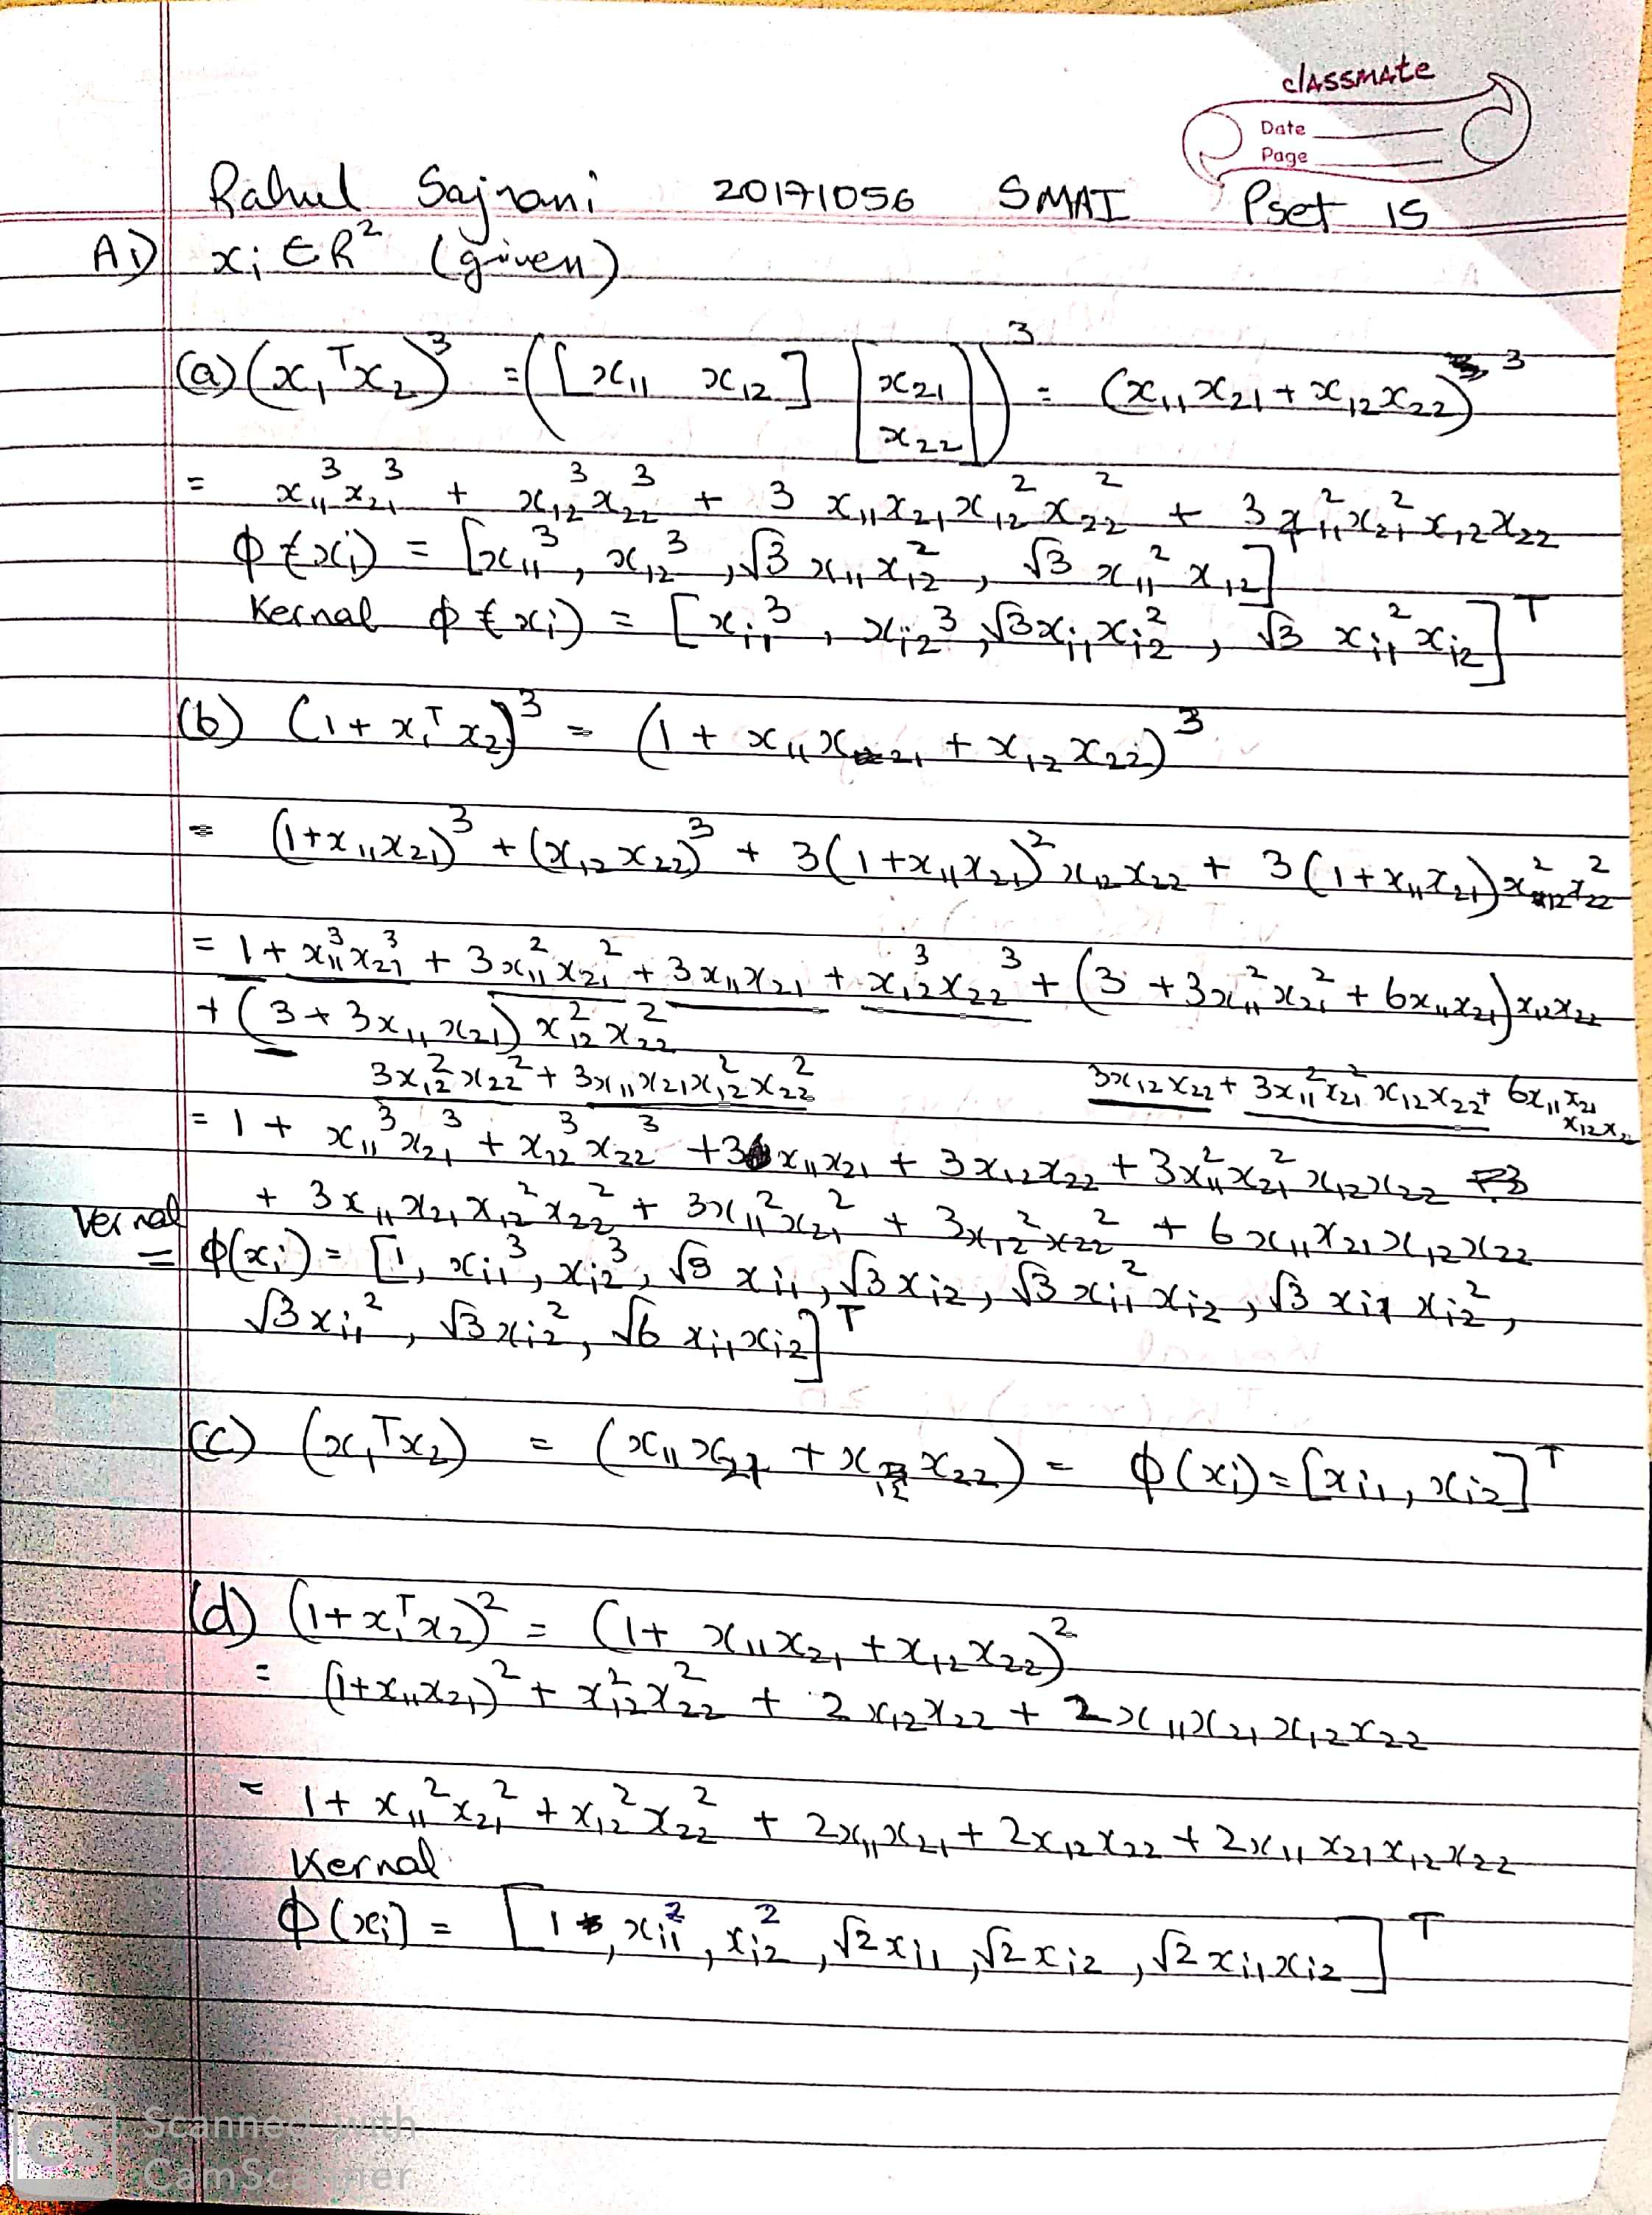 classmate
Date
Page
Rahul Sajnani 20171056 SMAI Pset 15
A1) xᵢ ∈ R² (given)
(a) (x₁ᵀx₂)³ = ([x₁₁ x₁₂] [x₂₁ x₂₂])³ = (x₁₁x₂₁ + x₁₂x₂₂)³
= x₁₁³x₂₁³ + x₁₂³x₂₂³ + 3 x₁₁x₂₁x₁₂²x₂₂² + 3 x₁₁²x₂₁²x₁₂x₂₂
ϕ(x₁) = [x₁₁³, x₁₂³, √3 x₁₁x₁₂², √3 x₁₁²x₁₂]ᵀ
Kernal ϕ(xᵢ) = [xᵢ₁³, xᵢ₂³, √3xᵢ₁xᵢ₂², √3 xᵢ₁²xᵢ₂]ᵀ
(b) (1 + x₁ᵀx₂)³ = (1 + x₁₁x₂₁ + x₁₂x₂₂)³
= (1+x₁₁x₂₁)³ + (x₁₂x₂₂)³ + 3(1+x₁₁x₂₁)²x₁₂x₂₂ + 3(1+x₁₁x₂₁)x₁₂²x₂₂²
= 1 + x₁₁³x₂₁³ + 3x₁₁²x₂₁² + 3x₁₁x₂₁ + x₁₂³x₂₂³ + (3 + 3x₁₁²x₂₁² + 6x₁₁x₂₁)x₁₂x₂₂
+ (3 + 3x₁₁x₂₁)x₁₂²x₂₂²
3x₁₂²x₂₂² + 3x₁₁x₂₁x₁₂²x₂₂² 3x₁₂x₂₂ + 3x₁₁²x₂₁²x₁₂x₂₂ + 6x₁₁x₂₁
x₁₂x₂₂
= 1 + x₁₁³x₂₁³ + x₁₂³x₂₂³ + 3x₁₁x₂₁ + 3x₁₂x₂₂ + 3x₁₁²x₂₁²x₁₂x₂₂
+ 3x₁₁x₂₁x₁₂²x₂₂² + 3x₁₁²x₂₁² + 3x₁₂²x₂₂² + 6x₁₁x₂₁x₁₂x₂₂
Kernal
= ϕ(xᵢ) = [1, xᵢ₁³, xᵢ₂³, √3 xᵢ₁, √3xᵢ₂, √3 xᵢ₁²xᵢ₂, √3 xᵢ₁xᵢ₂²,
√3xᵢ₁², √3xᵢ₂², √6 xᵢ₁xᵢ₂]ᵀ
(c) (x₁ᵀx₂) = (x₁₁x₂₁ + x₁₂x₂₂) = ϕ(xᵢ) = [xᵢ₁, xᵢ₂]ᵀ
(d) (1+x₁ᵀx₂)² = (1 + x₁₁x₂₁ + x₁₂x₂₂)²
= (1+x₁₁x₂₁)² + x₁₂²x₂₂² + 2x₁₂x₂₂ + 2x₁₁x₂₁x₁₂x₂₂
= 1 + x₁₁²x₂₁² + x₁₂²x₂₂² + 2x₁₁x₂₁ + 2x₁₂x₂₂ + 2x₁₁x₂₁x₁₂x₂₂
Kernal
ϕ(xᵢ) = [1, xᵢ₁², xᵢ₂², √2xᵢ₁, √2xᵢ₂, √2xᵢ₁xᵢ₂]ᵀ
CS Scanned with
CamScanner